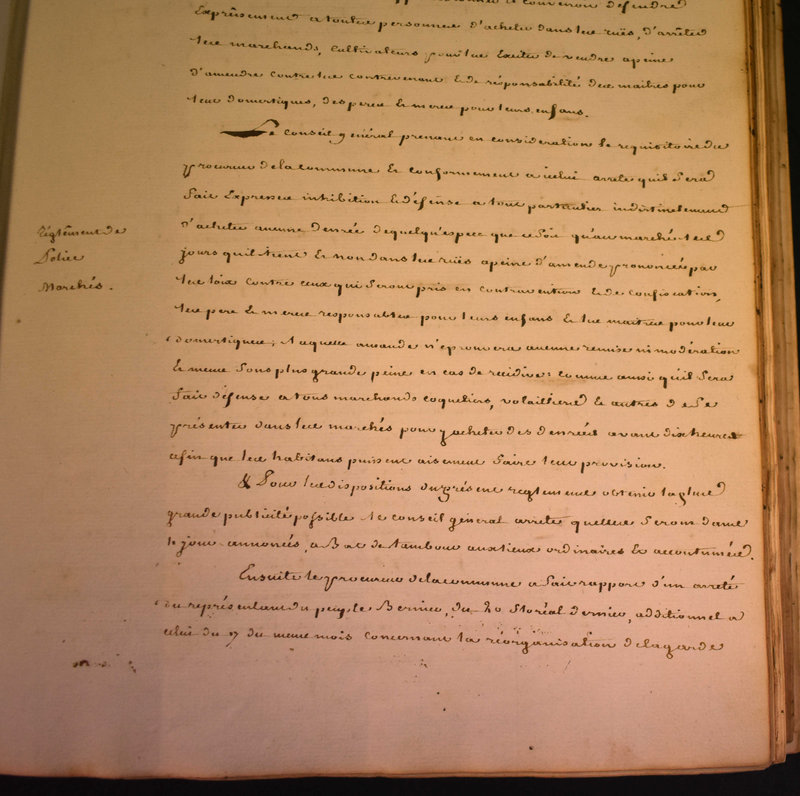 et convenoù défendre
Expréssement a toutte personnes d'achetter dans les ruës, d'arrêter
les marchands, cultivateurs pour les Exciter de vendre apeine
d'amendre contre les contrevenant & de résponsabilité des maitres pour
leur domestiques, des peres & meres pour leurs enfans.
Le conseil général prenant en considération le requisitoire du
procureur de la commune Et conformement a icelui arrete quil Sera
fait Expresses inhibition & défense a tout particulier indistinctement
d'achetter aucune denrée de quelqu'espece que ce Soit qu'au marché & les
jours quil tient Et non dans les ruës apeine d'amende prononcée par
Réglément de
Police
Marchés.
les loix contre ceux qui Seront pris en contravention & de confiscation,
les pere & meres responsables pour leurs enfans & les maitres pour leur
domestiques; Laquelle amande n'eprouvera aucune remise ni modération
Et meme Sous plus grande peine en cas de recidive: comme aussi quil Sera
fait défense a tous marchands coquetiers, volaillers & autres de Se
présenter dans les marchés pour y acheter des denrées avant dix heures
afin que les habitans puissent aisement faire leur provision.
& Pour les dispositions du présent reglement obtenir la plus
grande publicité possible le conseil général arrete quelles Seront dans
le jour annoncés, a Bac de tambour aux lieux ordinaires & accoutumées.
Ensuite le procureur de la commune a fait rapport d'un arreté
du représentant du peuple Bernier, du 20 floréal dernier, additionnel a
celui du 17 du meme mois concernant la réorganisation de la garde